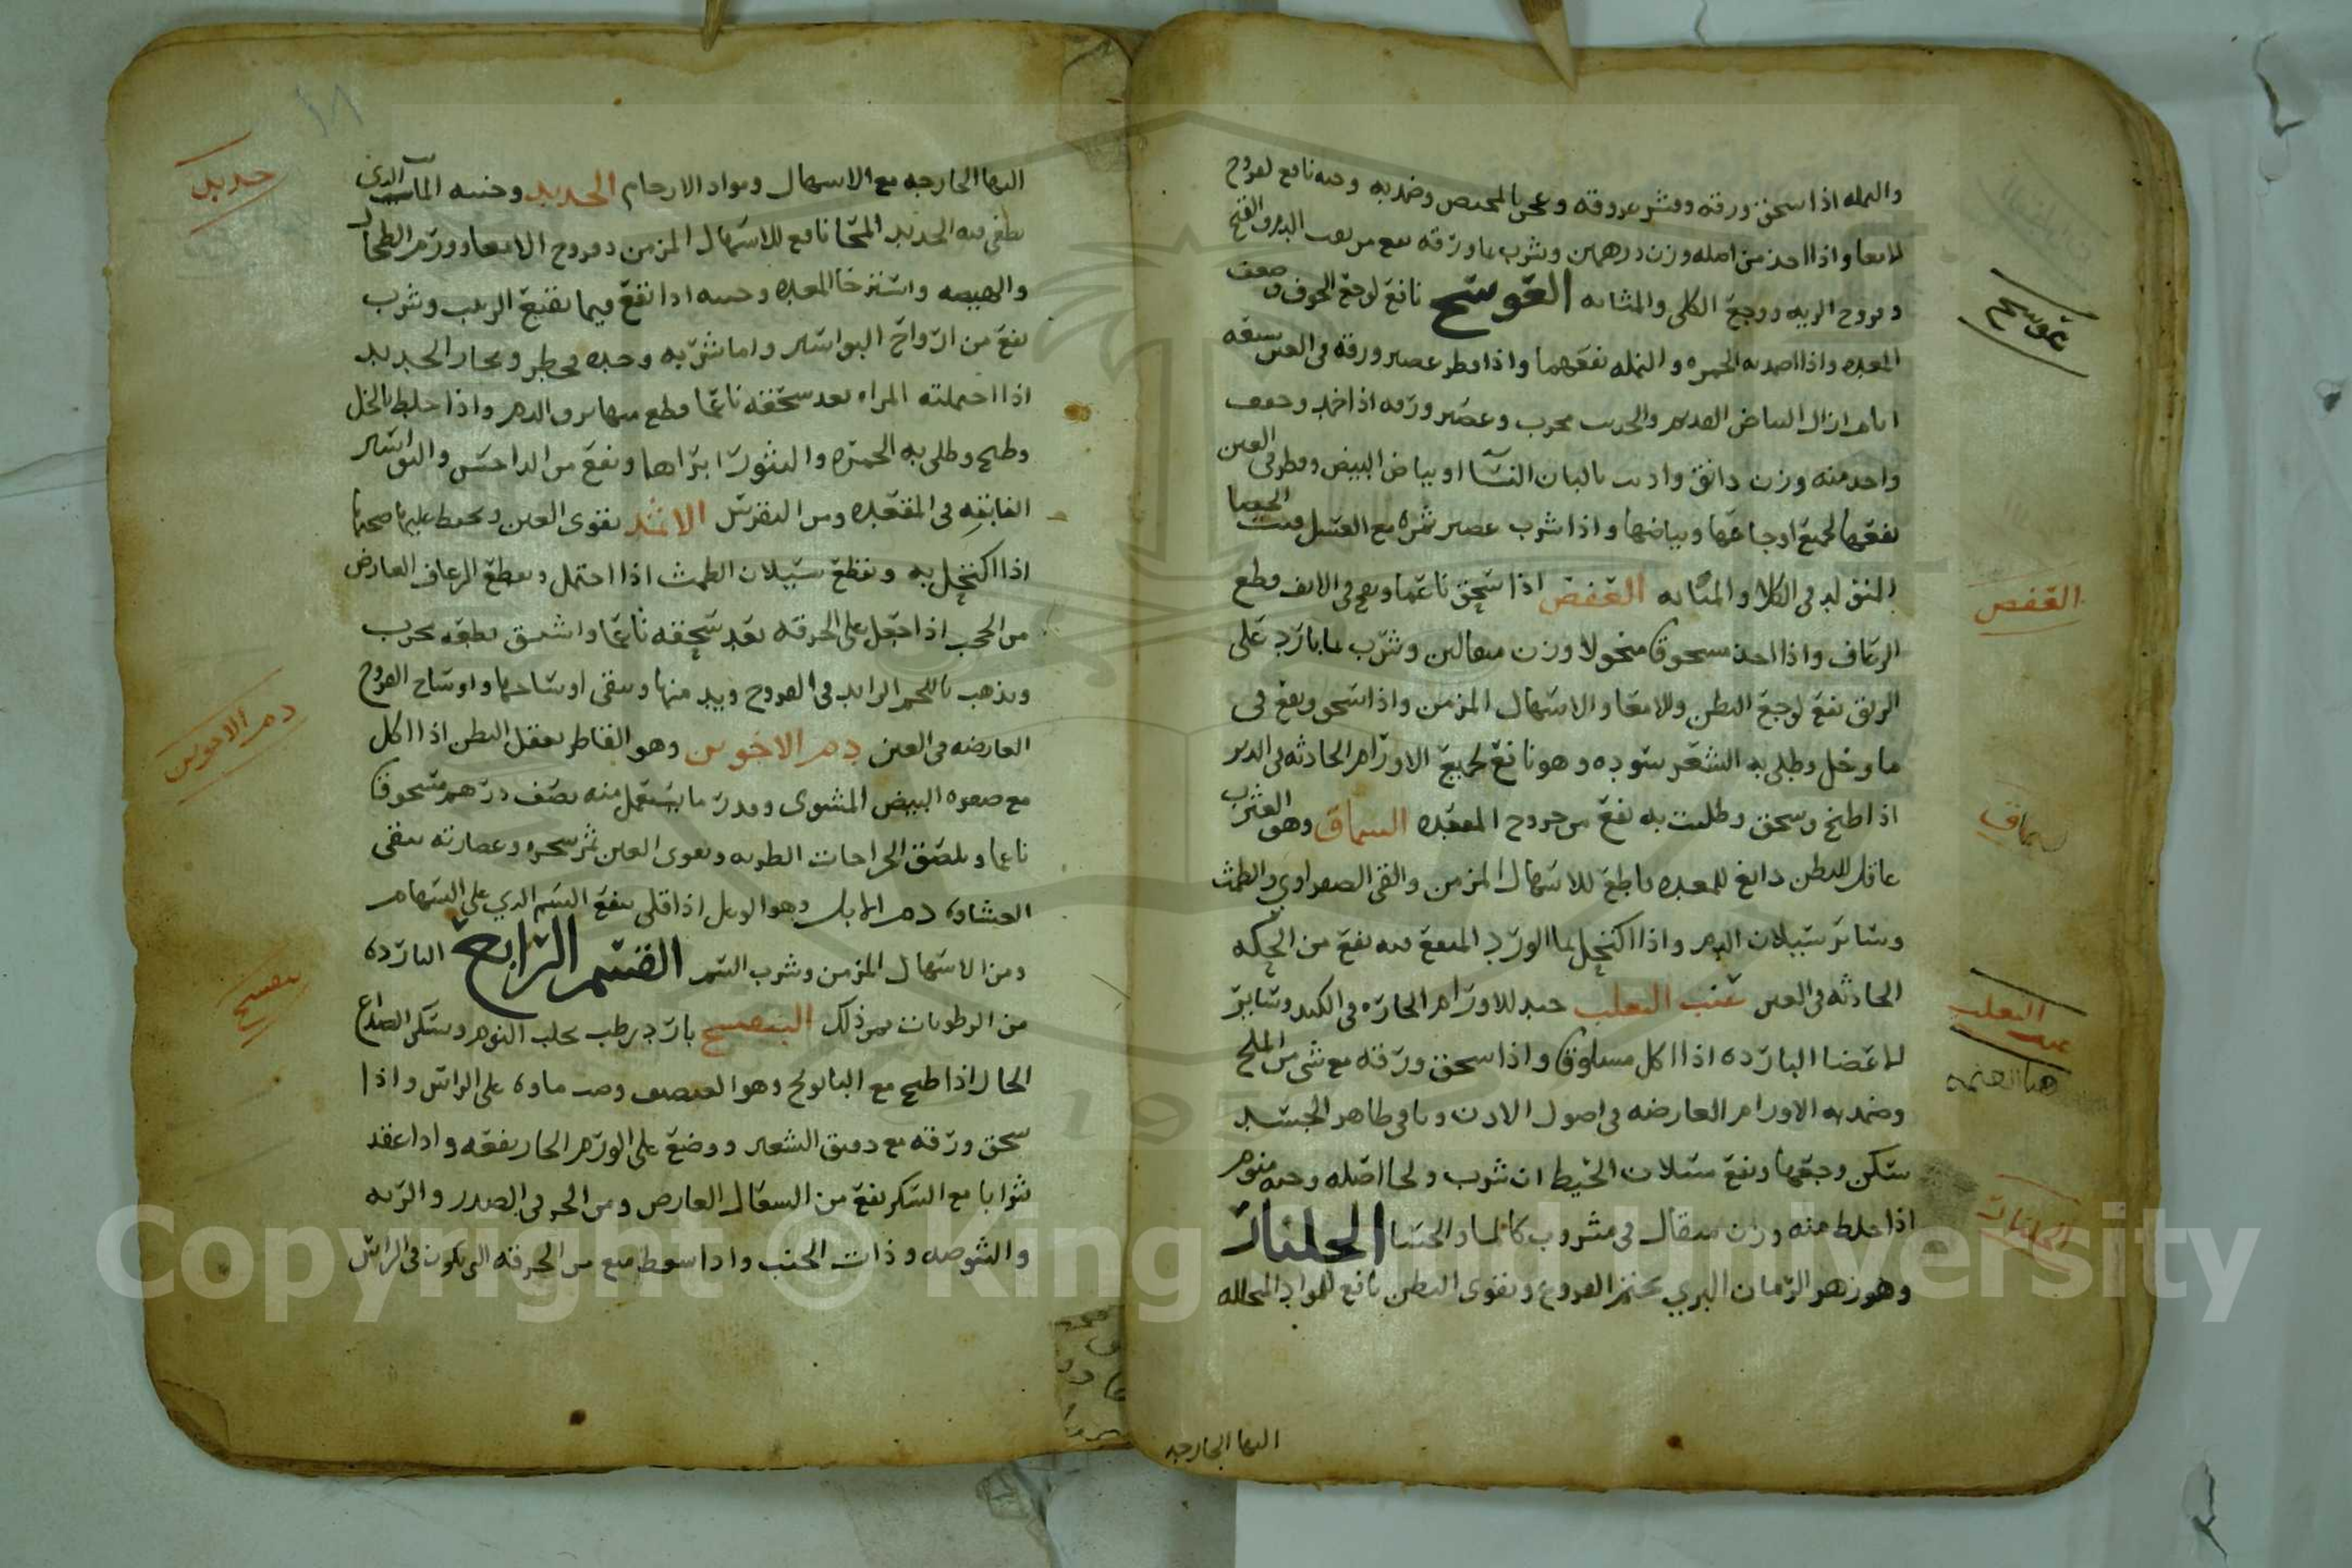 والنمله اذا سحق ورقه وقشر عروقه وعجن بالمحتص وضمد به وحبه نافع لقروح
الامعا واذا اخذ من اصله وزن درهمين وشرب بما ورقه نفع من نفث الدم والقيح
وقروح الريه ووجع الكلى والمثانه العوسج نافع لوجع الجوف وضعف
المعده واذا ضمد به الحمره والنمله نفعهما واذا قطر عصير ورقه في العين سبعه
ايام ازال البياض القديم والحديث مجرب وعصير ورقه اذا خمد وجفف
واخذ منه وزن دانق واديب بالبان النسا او بياض البيض وقطر في العين
نفعها لجميع اوجاعها وبياضها واذا شرب عصير ثمره مع العسل فتت الحصا
المتولد في الكلا والمثانه العفص اذا سحق ناعما ونفخ في الانف قطع
الرعاف واذا اخذ مسحوقا منخولا وزن مثقالين وشرب بما بارد على
الريق نفع لوجع البطن وللامعا والاسهال المزمن واذا سحق ونقع في
ما وخل وطلي به الشعر سوده وهو نافع لجميع الاورام الحادثه في الدبر
اذا طبخ وسحق وطليت به نفع من جروح المقعده السماق وهو العثرب
عاقل للبطن دابغ للمعده قاطع للاسهال المزمن والقي الصفراوي والطمث
وسائر سيلان الدم واذا اكتحل بما الورد المنقع فيه نفع من الحكه
الحادثه في العين عنب الثعلب جيد للاورام الحاره في الكبد وسائر
الاعضا البارده اذا اكل مسلوقا واذا سحق ورقه مع شي من الملح
وضمد به الاورام العارضه في اصول الاذن وباقي ظاهر الجسد
سكن وجعها ونفع سيلان الحيض ان شرب ولحا اصله وحبه منوم
اذا خلط منه وزن مثقال في مشروب كالما والحسا الجلنار
وهو زهر الرمان البري يختم القروح ويقوي البطن نافع للمواد المتحلله
اليها الخارجه
عوسج
العفص
سماق
عنب الثعلب
الجلنار
اليها الخارجه مع الاسهال ومواد الارحام الحديد وخبثه الما الذي
يطفى فيه الحديد المحما نافع للاسهال المزمن وقروح الامعا وورم الطحال
والهيضه واسترخا المعده وخبثه اذا نقع فيما نقيع الزبيب وشرب
نفع من ارواح البواسير واما شربه وحده فخطر وبخار الحديد
اذا احتملته المراه بعد سحقه ناعما قطع منها نزف الدم واذا خلط بالخل
وطبخ وطلي به الحمره والبثور ابراها ونفع من الداحس والبواسير
الغايره في المقعده ومن النقرس الاثمد يقوي العين ويحفظ عليها صحتها
اذا اكتحل به ويقطع سيلان الطمث اذا احتمل ويقطع الرعاف العارض
من الحجب اذا جعل على الخرقه بعد سحقه ناعما واستنشق يقطعه مجرب
ويذهب باللحم الزايد في القروح ويدمنها وينقي اوساخها واوساخ القروح
العارضه في العين دم الاخوين وهو القاطر يعقل البطن اذا اكل
مع صفره البيض المشوي وقدر ما يستعمل منه نصف درهم مسحوقا
ناعما ويلصق الجراحات الطريه ويقوي العين ثمر شجره وعصارته ينقي
الغشاوه دم الايل وهو الوعل اذا قلي ينفع السم الذي على السهام
ومن الاسهال المزمن وشرب السم القسم الرابع البارده
من الرطوبات فمن ذلك البنفسج بارد رطب يجلب النوم ويسكن الصداع
الحار اذا طبخ مع البابونج وصب ماوه على الراس واذا
سحق ورقه مع دقيق الشعير ووضع على الورم الحار نفعه واذا عقد
شرابا مع السكر نفع من السعال العارض ومن الحر في الصدر والريه
والشوصه وذات الجنب واذا سعط نفع من الحرقه التي تكون في الراس
حديد
دم الاخوين
بنفسج
١٨
Copyright © King Saud University